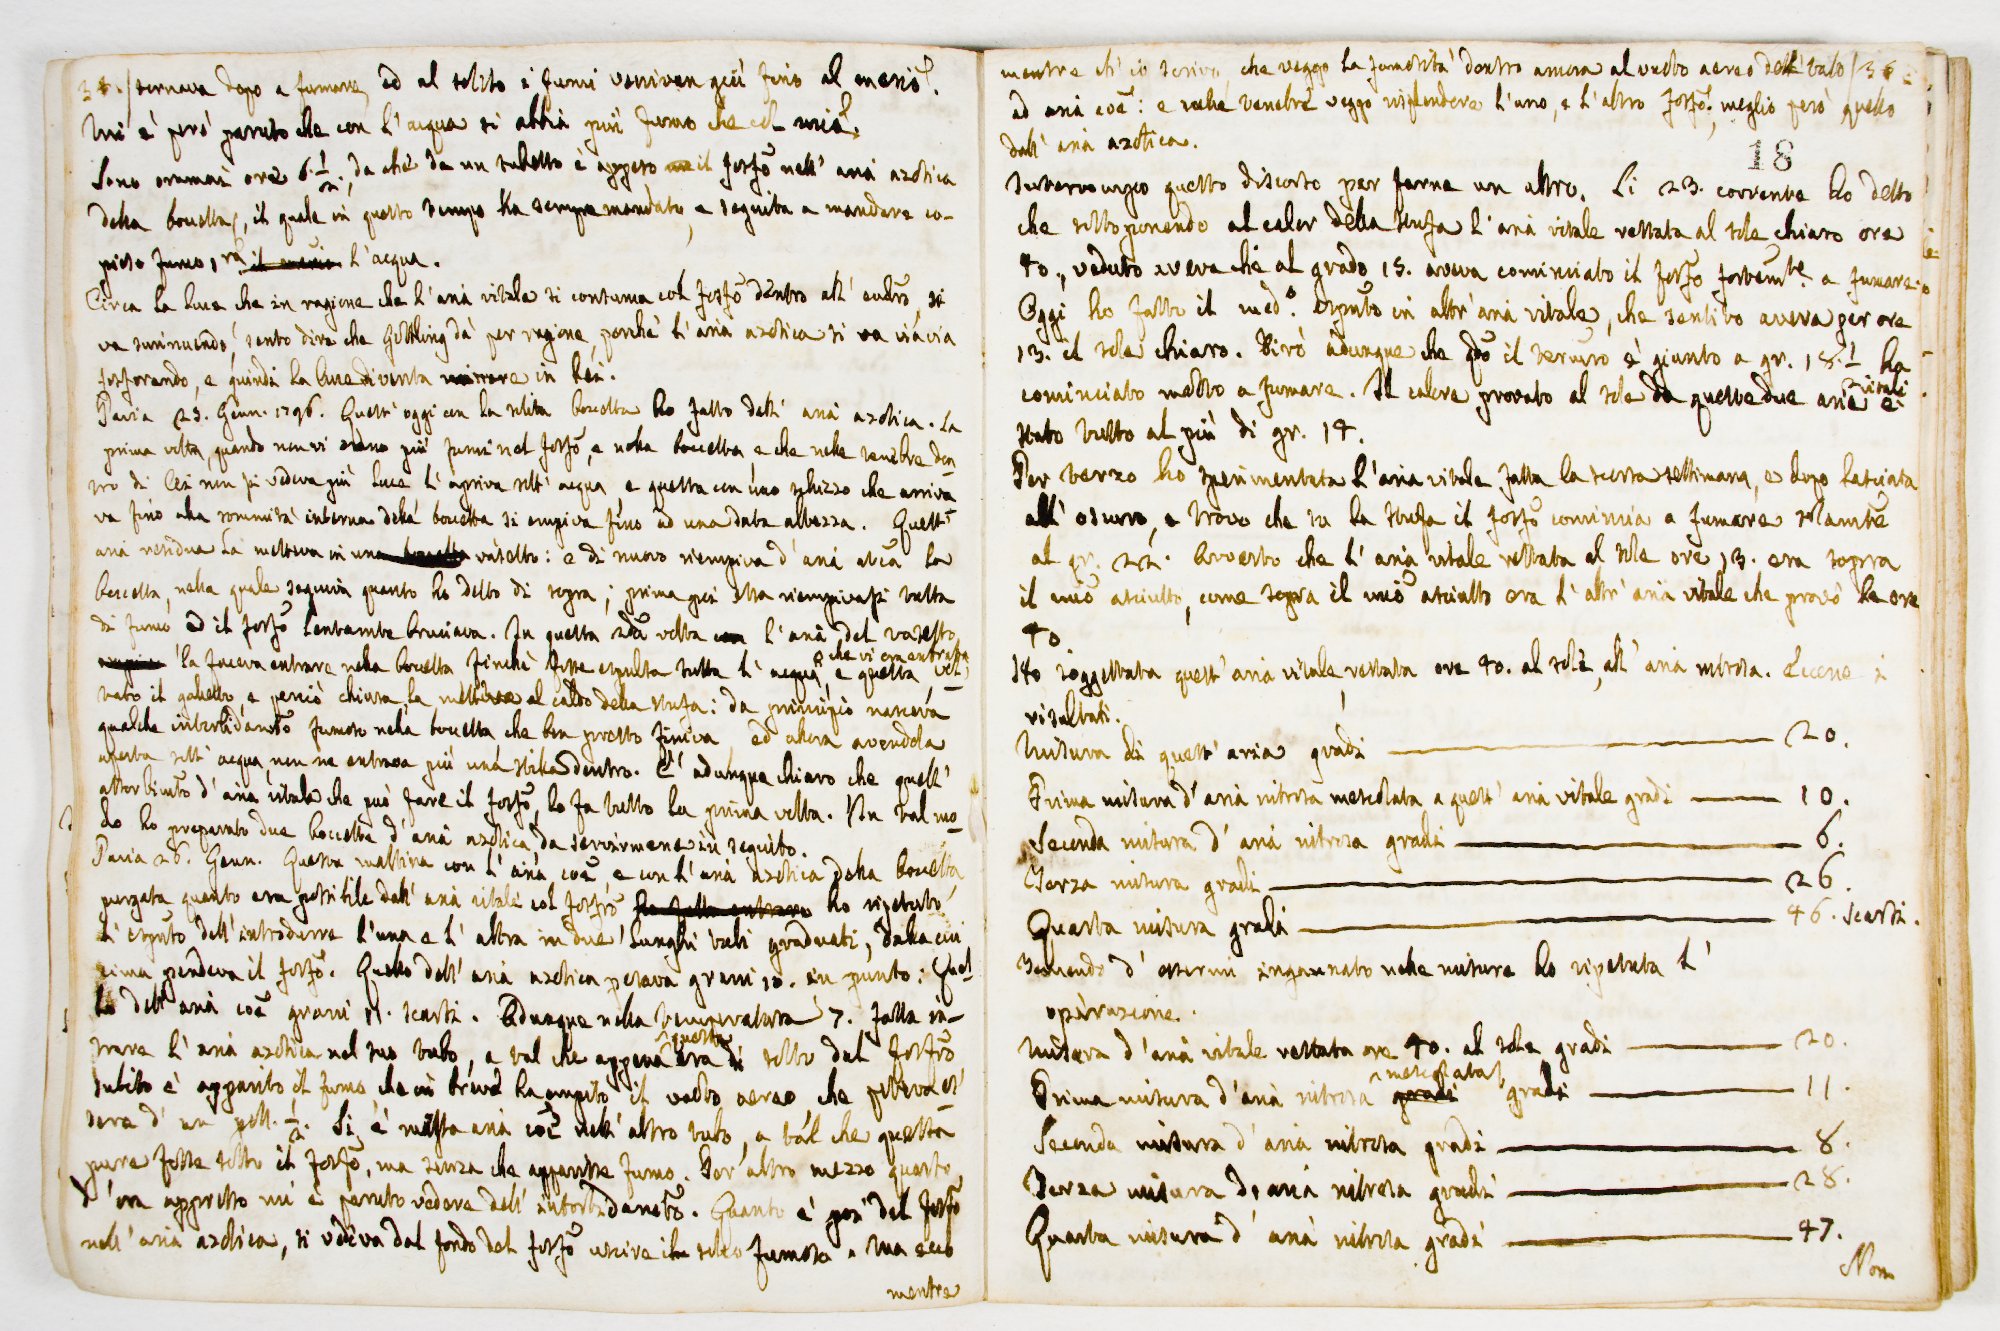 tornava dopo a fumare, ed al solito i fumi venivan giù fino al merio.
Mi è però parruto che con l'acqua si abbia più fumo che col merio.
Sono oramai ore 6. 1/2. da che da un tubetto è appeso il fosfo nell' aria azotica
della boccetta, il quale in questo tempo ha sempre mandato, e seguita a mandare co-
pioso fumo, l'acqua.
Circa la luce che in ragione che l'aria vitale si consuma col fosfo dentro all'
va sminuendo, sento dire che Göttling dà per ragione, perchè l'aria azotica si va via via
fosforando, e quindi la luce diventa minore in lei.
Pavia 25. Genn. 1796. Quest' oggi con la solita boccetta ho fatto dell' aria azotica. La
prima volta, quando non vi erano più fumi nel fosfo, e nella boccetta e che nelle tenebre den
tro di lei non si vedeva più luce l'apriva sott' acqua, e questa con uno schizzo che arriva
va fino alla sommità interna della boccetta si empiva fino ad una data altezza. Quest'
aria residua la metteva in una vasetto: e di nuovo riempiva d'aria atca la
boccetta, nella quale seguiva quanto ho detto di sopra; prima poi essa riempivasi tutta
di fumo ed il fosfo lentamte bruciava. In questa 2da volta l'aria del vasetto
che vi era entrata
la faceva entrare nella boccetta finchè fosse espulsa tutta l'acqua e questa
tato il galletto, e perciò chiusa la metteva al caldo della stufa: da principio nasceva
qualche intorbidamto fumoso nella boccetta che ben presto finiva, ed allora avendola
aperta sott' acqua, non ne entrava più una stilla dentro. E' adunque chiaro che quell'
assorbimto d'aria vitale che può fare il fosfo, lo fa tutto la prima volta. In tal mo
do ho preparato due boccette d'aria azotica da servirmene in seguito.
Pavia 26. Genn. Questa mattina con l'aria coe e con l'aria azotica della boccetta
purgata quanto era possibile dall' aria vitale col fosfro ho ripetuto
l'esputo dell'introdurre l'una e l'altra in due lunghi tubi graduati, dalla cui
cima pendeva il fosfo. Quello dell' aria azotica pesava grani 10. in punto: Quel
lo dell' aria coe grani 11. scarsi. Adunque nella temperatura 7. fatta in-
trare l'aria azotica nel suo tubo, a tal che appena questa era di sotto del fosfro
subito è apparito il fumo, che in breve ha empito il vuoto aereo che poteva es
sere d'un poll. 1/2. Si è messa aria coe nell' altro tubo, a tal che questa
pure fosse sotto il fosfo, ma senza che apparisse fumo. Per altro mezzo quarto
d'ora appresso mi è parruto vedere dell' intorbidamto. Quanto è poi del fosfo
nell' aria azotica, si vedeva dal fondo del fosfo uscire il fumoso. Ma ecco
mentre
mentre ch' io scrivo che veggo la fumosità dentro ancora al vuoto aereo dell' tubo 36
ad aria coe: e nelle tenebre veggo risplendere l'uno, e l'altro fosfo, meglio però quello
dall' aria azotica.
18
Interrompo questo discorso per farne un altro. Li 23. corrente ho detto
che sottoponendo al calor della stufa l'aria vitale restata al sole chiaro ore
40., veduto aveva che al grado 15. aveva cominciato il fosfo fortemte a fumare.
Oggi ho fatto il medo. esputo in altr' aria vitale, che sentito aveva per ore
13. il sole chiaro. Dirò adunque che qdo il termro è giunto a gr. 18. 1/2 ha
cominciato molto a fumare. Il calore provato al sole da queste due arie vitali è
stato tutto al più di gr. 14.
Per terzo ho sperimentata l'aria vitale fatta la scorsa settimana, e dopo lasciata
all' oscuro, e trovo che su la stufa il fosfo comincia a fumare
al gr. 22. Avverto che l'aria vitale restata al sole ore 13. era sopra
il merio asciutto, come sopra il merio asciutto era l'altr' aria vitale che provò le ore
40
Ho soggettata quest' aria vitale, restata ore 40. al sole, all' aria nitrosa. Eccone i
risultati.
Misura di quest' aria gradi 20.
Prima misura d'aria nitrosa mescolata a quest' aria vitale gradi 10.
Seconda misura d'aria nitrosa gradi 6.
Terza misura gradi 26.
Quarta misura gradi 46. scarsi.
Temendo d'essermi ingannato nelle misure ho ripetuta l'
operazione.
Misura d'aria vitale restata ore 40. al sole gradi 20.
Prima misura d'aria nitrosa mescolata gradi 11.
Seconda misura d'aria nitrosa gradi 8.
Terza misura d'aria nitrosa gradi 28.
Quarta misura d'aria nitrosa gradi 47.
Non